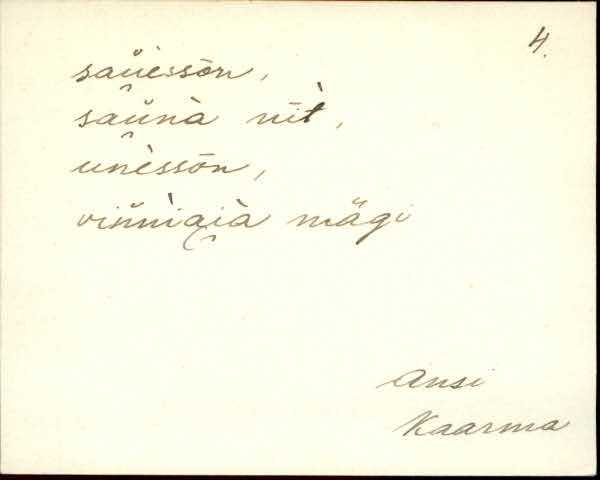 4.
saŭèssōn,
saŭ̯nà nīt̀,
unèssōn,
vinnìai̯à mägi
Ansi
Kaarma